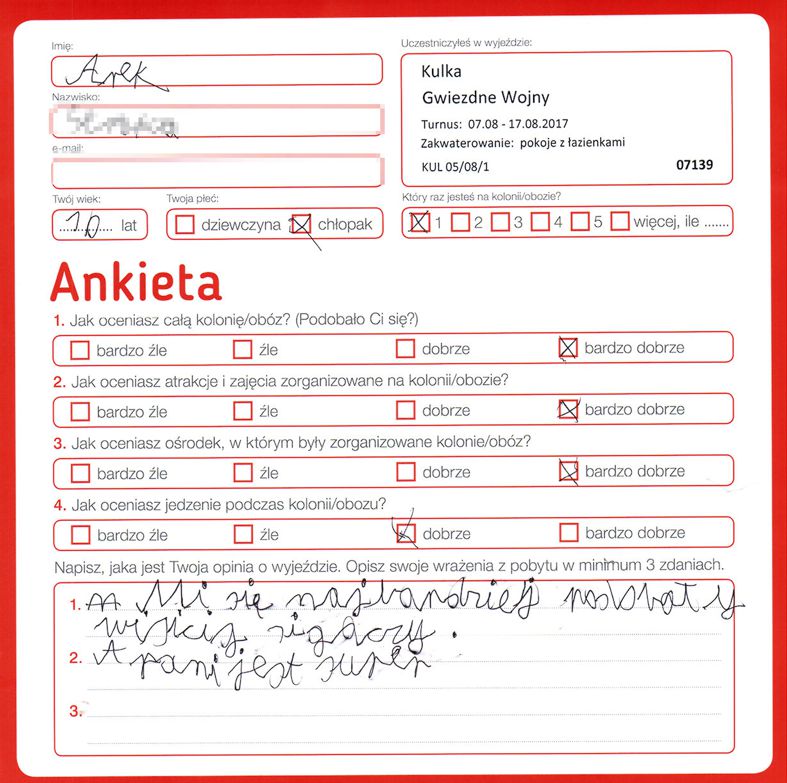 Imię:
Arek
Uczestniczyłeś w wyjeździe:
Kulka
Gwiezdne Wojny
Turnus: 07.08 - 17.08.2017
Zakwaterowanie: pokoje z łazienkami
KUL 05/08/1 07139
Nazwisko:
e-mail:
Twój wiek:
10 lat
Twoja płeć:
dziewczyna chłopak
Który raz jesteś na kolonii/obozie?
1 2 3 4 5 więcej, ile .......
Ankieta
1. Jak oceniasz całą kolonię/obóz? (Podobało Ci się?)
bardzo źle źle dobrze bardzo dobrze
2. Jak oceniasz atrakcje i zajęcia zorganizowane na kolonii/obozie?
bardzo źle źle dobrze bardzo dobrze
3. Jak oceniasz ośrodek, w którym były zorganizowane kolonie/obóz?
bardzo źle źle dobrze bardzo dobrze
4. Jak oceniasz jedzenie podczas kolonii/obozu?
bardzo źle źle dobrze bardzo dobrze
Napisz, jaka jest Twoja opinia o wyjeździe. Opisz swoje wrażenia z pobytu w minimum 3 zdaniach.
1. Mi się najbardziej
2. A pani jest super
3.